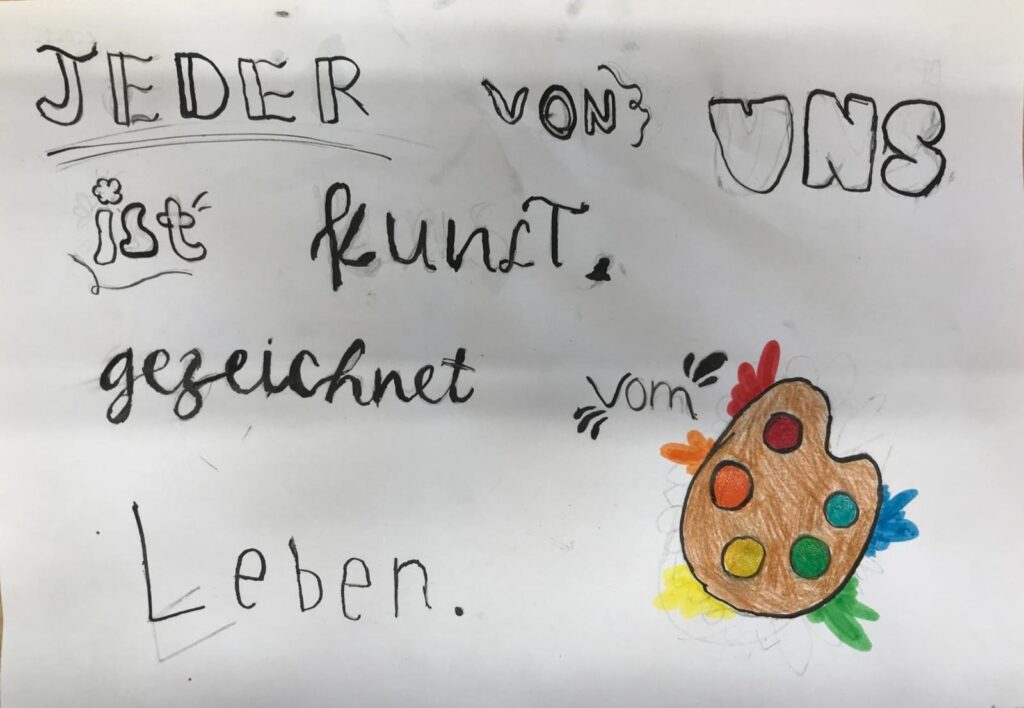 JEDER VON UNS
ist KUNST.
gezeichnet vom
Leben.